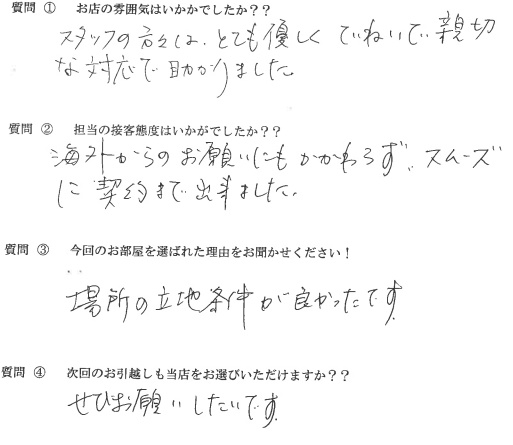 質問 ① お店の雰囲気はいかかでしたか？？
スタッフの方々は、とても優しくていねいで親切
な対応で助かりました。
質問 ② 担当の接客態度はいかがでしたか？？
海外からのお願いにもかかわらず、スムーズ
に契約まで出来ました。
質問 ③ 今回のお部屋を選ばれた理由をお聞かせください！
場所の立地条件が良かったです。
質問 ④ 次回のお引越しも当店をお選びいただけますか？？
ぜひお願いしたいです。